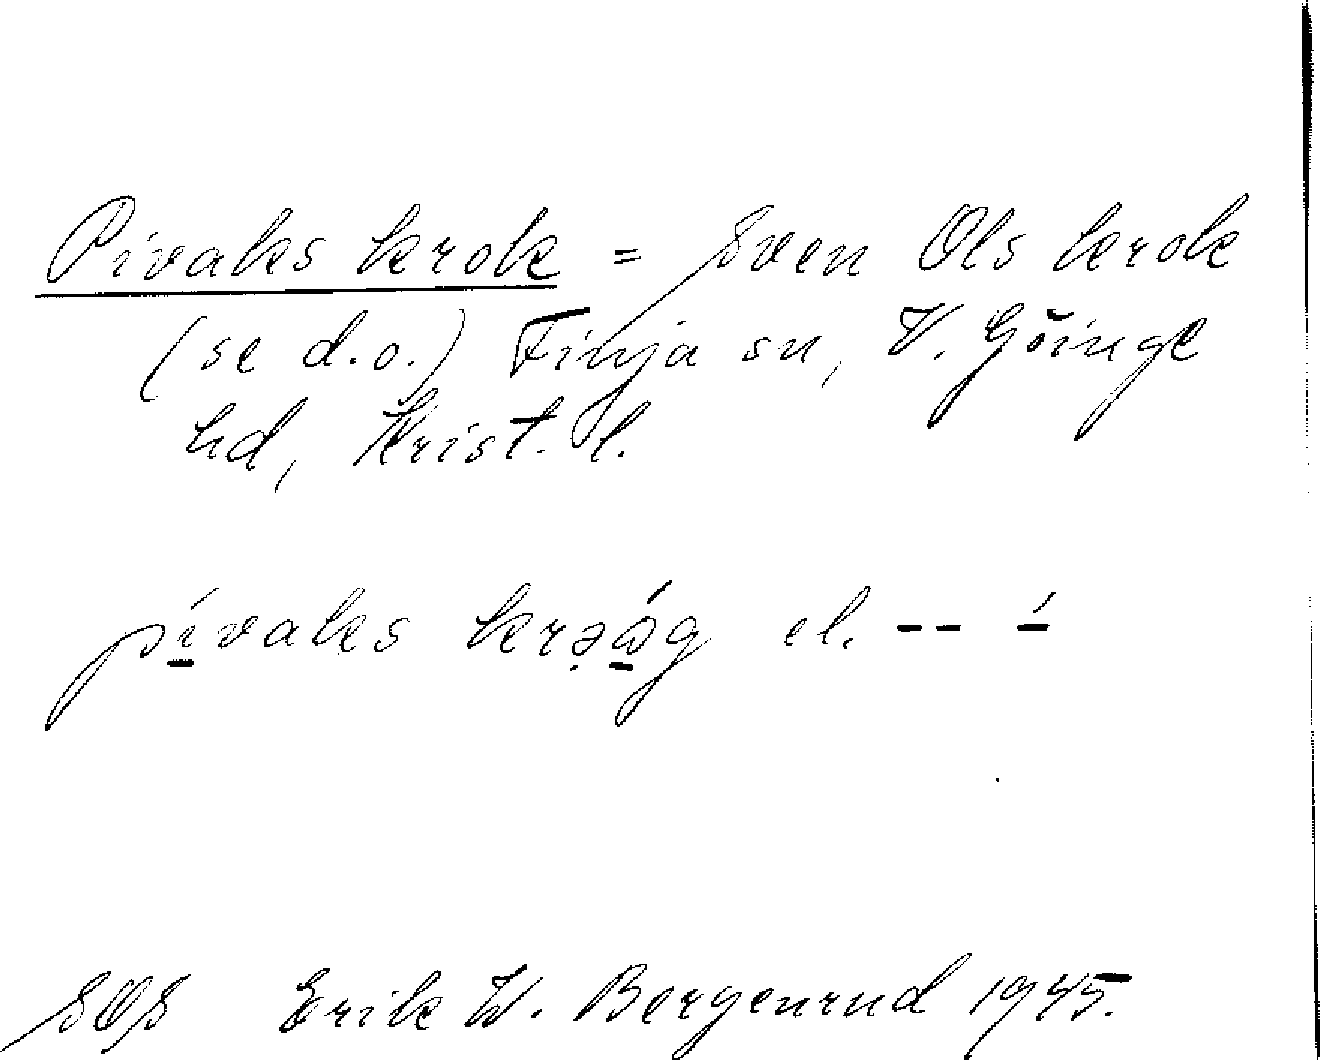 Pivaks krok = Sven Ols krok
(se d.o.) Finja sn, V. Göinge
hd, Krist. l.
pívaks
el. -- -́
Erik W. Bergenrud 1945.